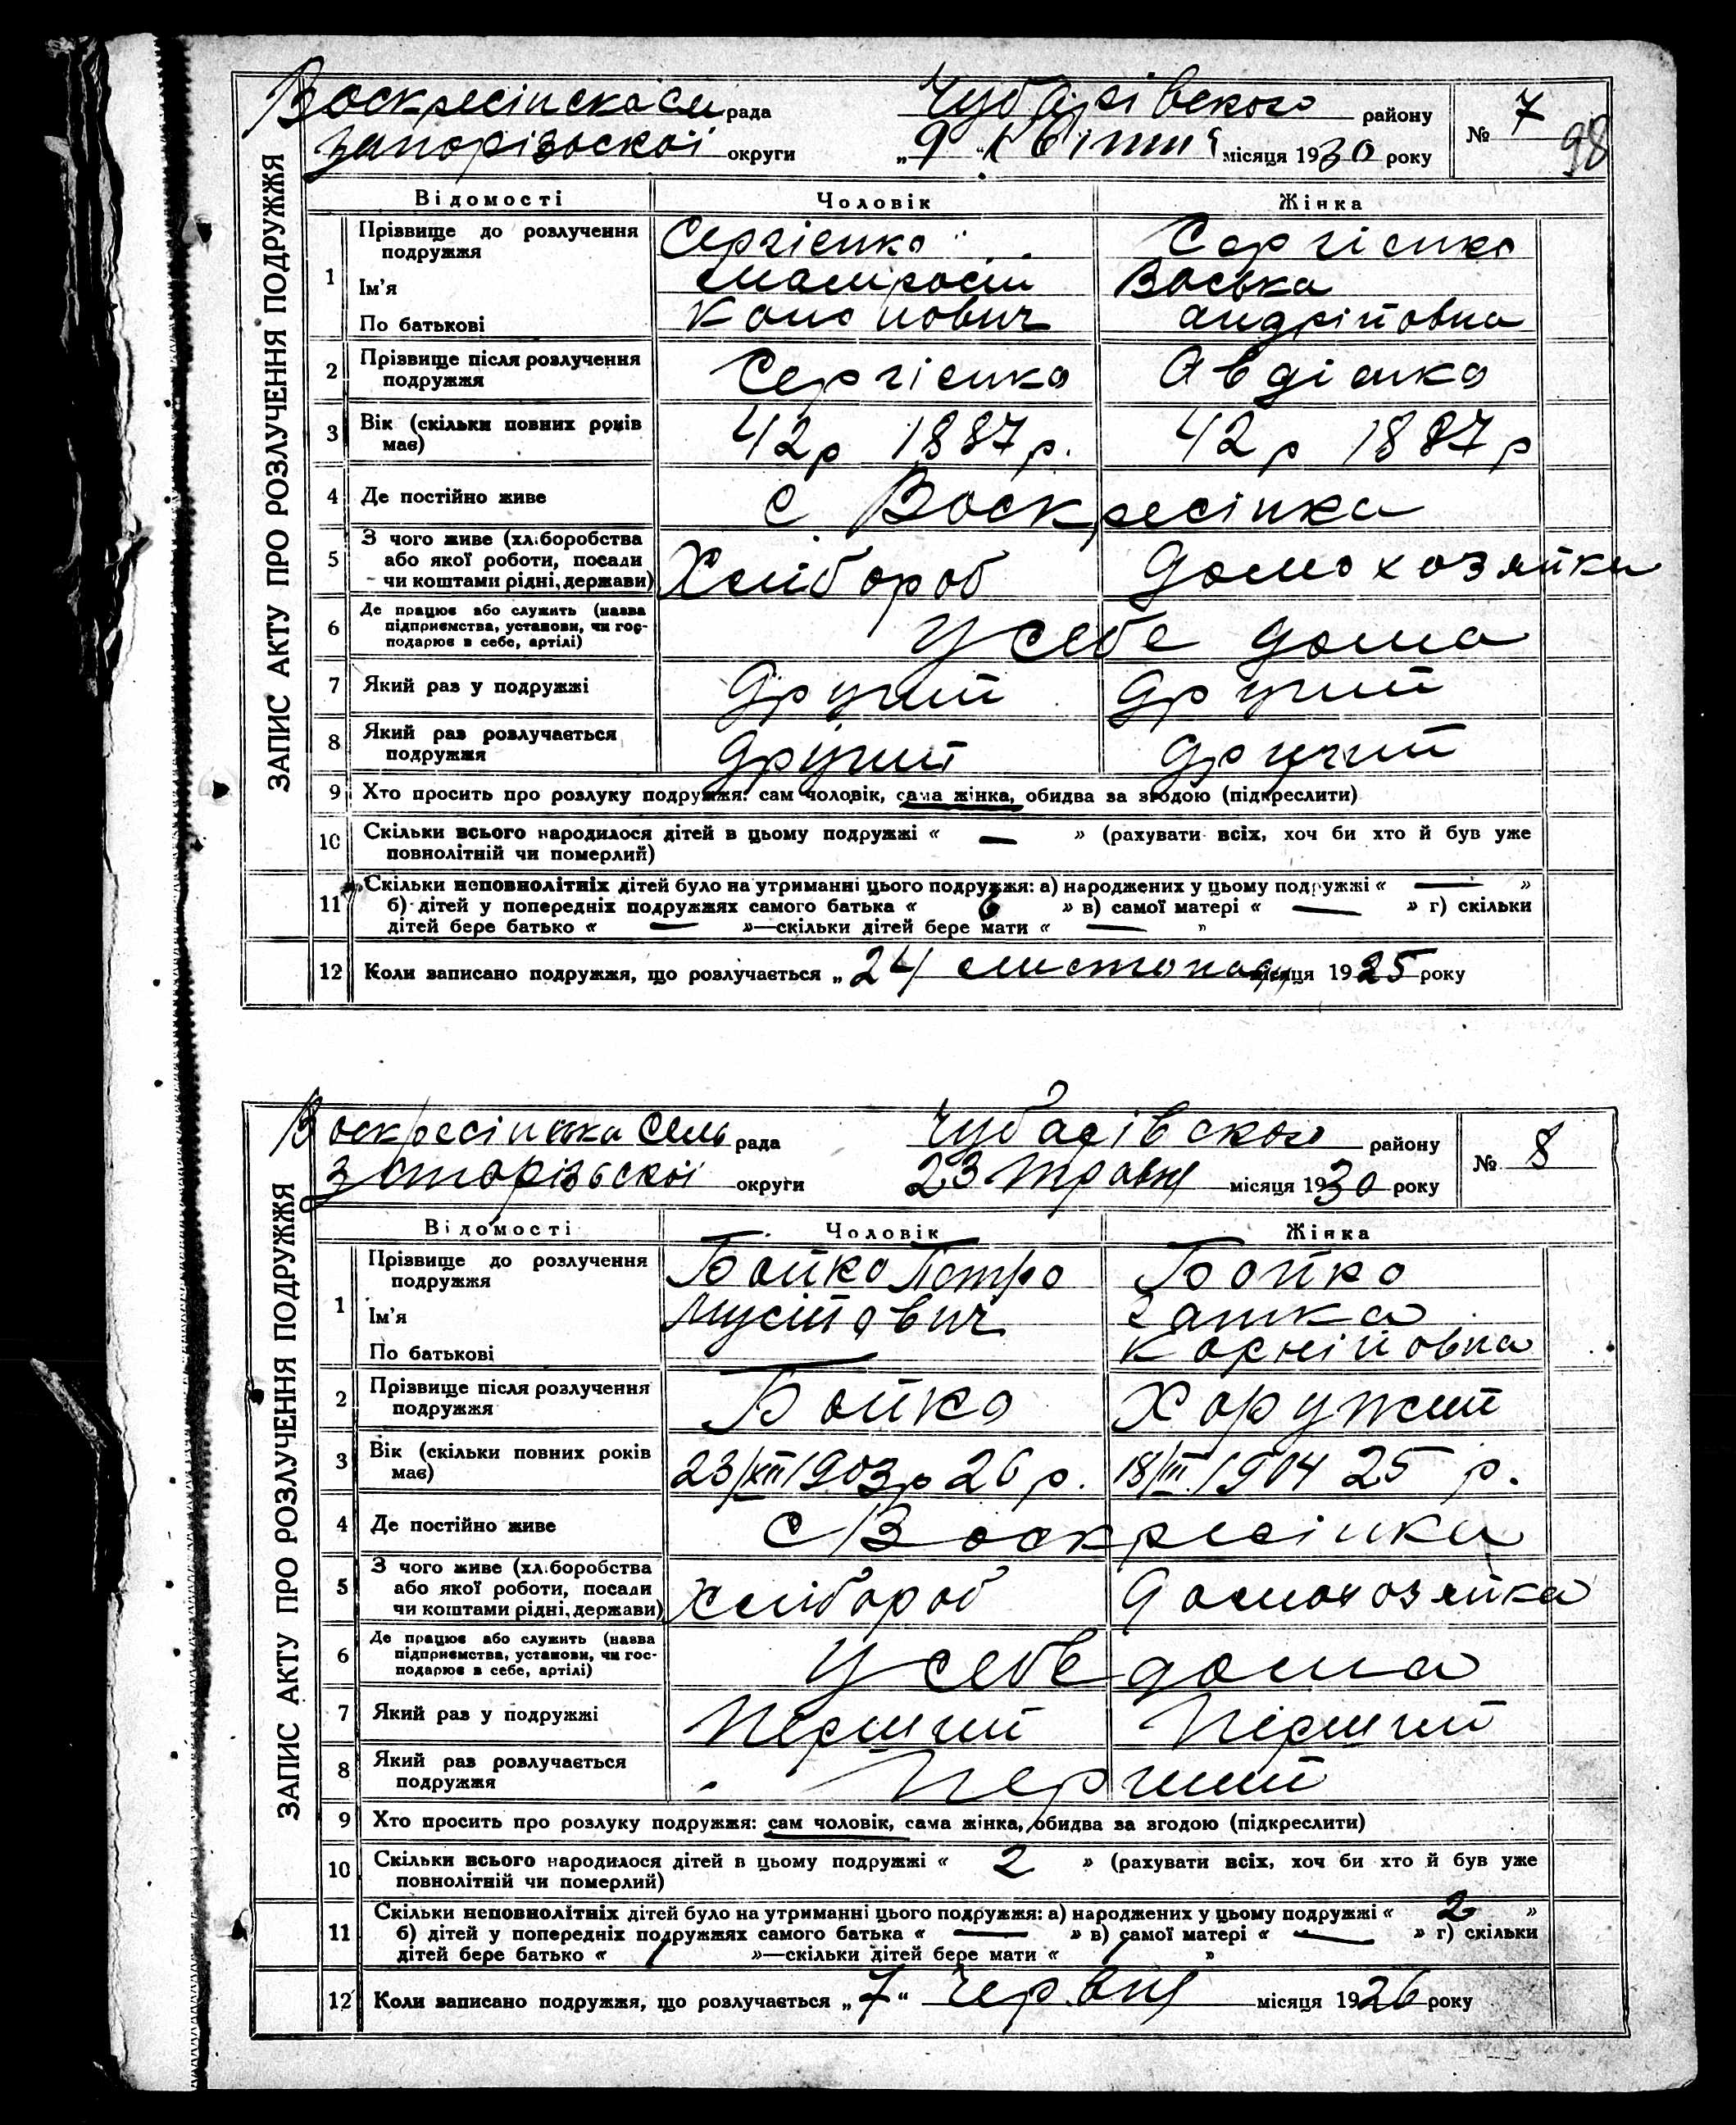 ЗАПИС АКТУ ПРО РОЗЛУЧЕННЯ ПОДРУЖЖЯ
Воскресінска Сел рада Чубарівского району № 7
98
Запорізьской округи „9“ Квітня місяця 1930 року
Відомості Чоловік Жінка
1 Прізвище до розлучення подружжя Сергієнко Сергієнко
Ім’я Васька
По батькові Кононович Андрійовна
2 Прізвище після розлучення подружжя Сергієнко Авдієнко
3 Вік (скільки повних років має) 42 р 1887 р. 42 р 1887 р
4 Де постійно живе с Воскресінка
5 З чого живе (хліборобства
або якої роботи, посади
чи коштами рідні, держави) Хлібороб Домохозяйка
6 Де працює або служить (назва
підприємства, установи, чи гос-
подарює в себе, артілі) У себе дома
7 Який раз у подружжі Другий Другий
8 Який раз розлучається
подружжя Другий Другий
9 Хто просить про розлуку подружжя: сам чоловік, сама жінка, обидва за згодою (підкреслити)
10 Скільки всього народилося дітей в цьому подружжі « — » (рахувати всіх, хоч би хто й був уже
повнолітній чи померлий)
11 Скільки неповнолітніх дітей було на утриманні цього подружжя: а) народжених у цьому подружжі « — »
б) дітей у попередніх подружжях самого батька « 6 » в) самої матері « — » г) скільки
дітей бере батько « — »—скільки дітей бере мати « — »
12 Коли записано подружжя, що розлучається „24 листопада місяця 1925 року
ЗАПИС АКТУ ПРО РОЗЛУЧЕННЯ ПОДРУЖЖЯ
Воскресінска Сель рада Чубарівского району № 8
Запорізьской округи 23 травня місяця 1930 року
Відомості Чоловік Жінка
1 Прізвище до розлучення
подружжя Бойко Петро Бойко
Ім’я Мусійович
По батькові Корнійовна
2 Прізвище після розлучення
подружжя Бойко Хоружий
3 Вік (скільки повних років
має) 23/XII 1903 р 26 р. 18/III 1904 25 р.
4 Де постійно живе с Воскресінка
5 З чого живе (хліборобства
або якої роботи, посади
чи коштами рідні, держави) Хлібороб Домохозяйка
6 Де працює або служить (назва
підприємства, установи, чи гос-
подарює в себе, артілі) У себе дома
7 Який раз у подружжі Перший Перший
8 Який раз розлучається
подружжя Перший
9 Хто просить про розлуку подружжя: сам чоловік, сама жінка, обидва за згодою (підкреслити)
10 Скільки всього народилося дітей в цьому подружжі « 2 » (рахувати всіх, хоч би хто й був уже
повнолітній чи померлий)
11 Скільки неповнолітніх дітей було на утриманні цього подружжя: а) народжених у цьому подружжі « 2 »
б) дітей у попередніх подружжях самого батька « — » в) самої матері « — » г) скільки
дітей бере батько « 1 »—скільки дітей бере мати « 1 »
12 Коли записано подружжя, що розлучається „7“ Червня місяця 1926 року